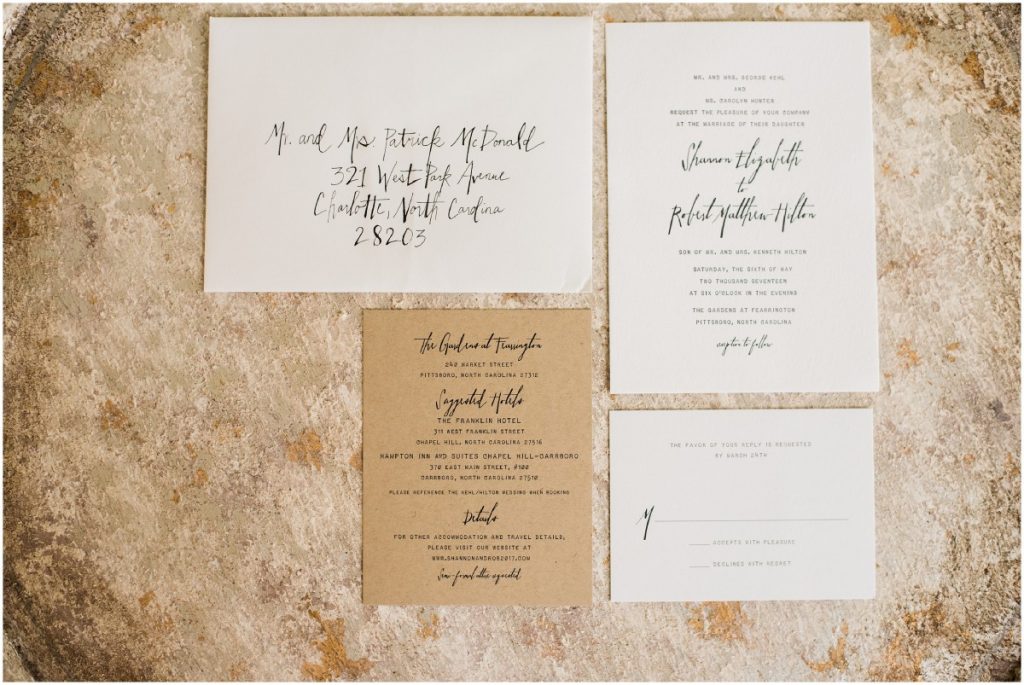 Mr. and Mrs. Patrick McDonald
321 West Park Avenue
Charlotte, North Carolina
28203
MR. AND MRS. GEORGE KEHL
AND
MS. CAROLYN HUNTER
REQUEST THE PLEASURE OF YOUR COMPANY
AT THE MARRIAGE OF THEIR DAUGHTER
Shannon Elizabeth
to
Robert Matthew Hilton
SON OF MR. AND MRS. KENNETH HILTON
SATURDAY, THE SIXTH OF MAY
TWO THOUSAND SEVENTEEN
AT SIX O'CLOCK IN THE EVENING
THE GARDENS AT FEARRINGTON
PITTSBORO, NORTH CAROLINA
reception to follow
The Gardens at Fearrington
240 MARKET STREET
PITTSBORO, NORTH CAROLINA 27312
Suggested Hotels
THE FRANKLIN HOTEL
311 WEST FRANKLIN STREET
CHAPEL HILL, NORTH CAROLINA 27516
HAMPTON INN AND SUITES CHAPEL HILL-CARRBORO
370 EAST MAIN STREET, #100
CARRBORO, NORTH CAROLINA 27510
PLEASE REFERENCE THE KEHL/HILTON WEDDING WHEN BOOKING
Details
FOR OTHER ACCOMMODATION AND TRAVEL DETAILS,
PLEASE VISIT OUR WEBSITE AT
WWW.SHANNONANDROB2017.COM
Semi-formal attire requested
THE FAVOR OF YOUR REPLY IS REQUESTED
BY MARCH 24TH
M
ACCEPTS WITH PLEASURE
DECLINES WITH REGRET